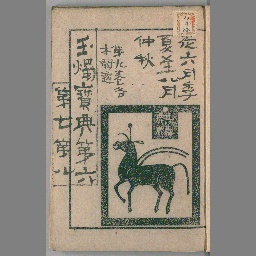 從六月季
夏至八月
仲秋
第九卷子
本附逓
玉燭寶典第六
第七第八